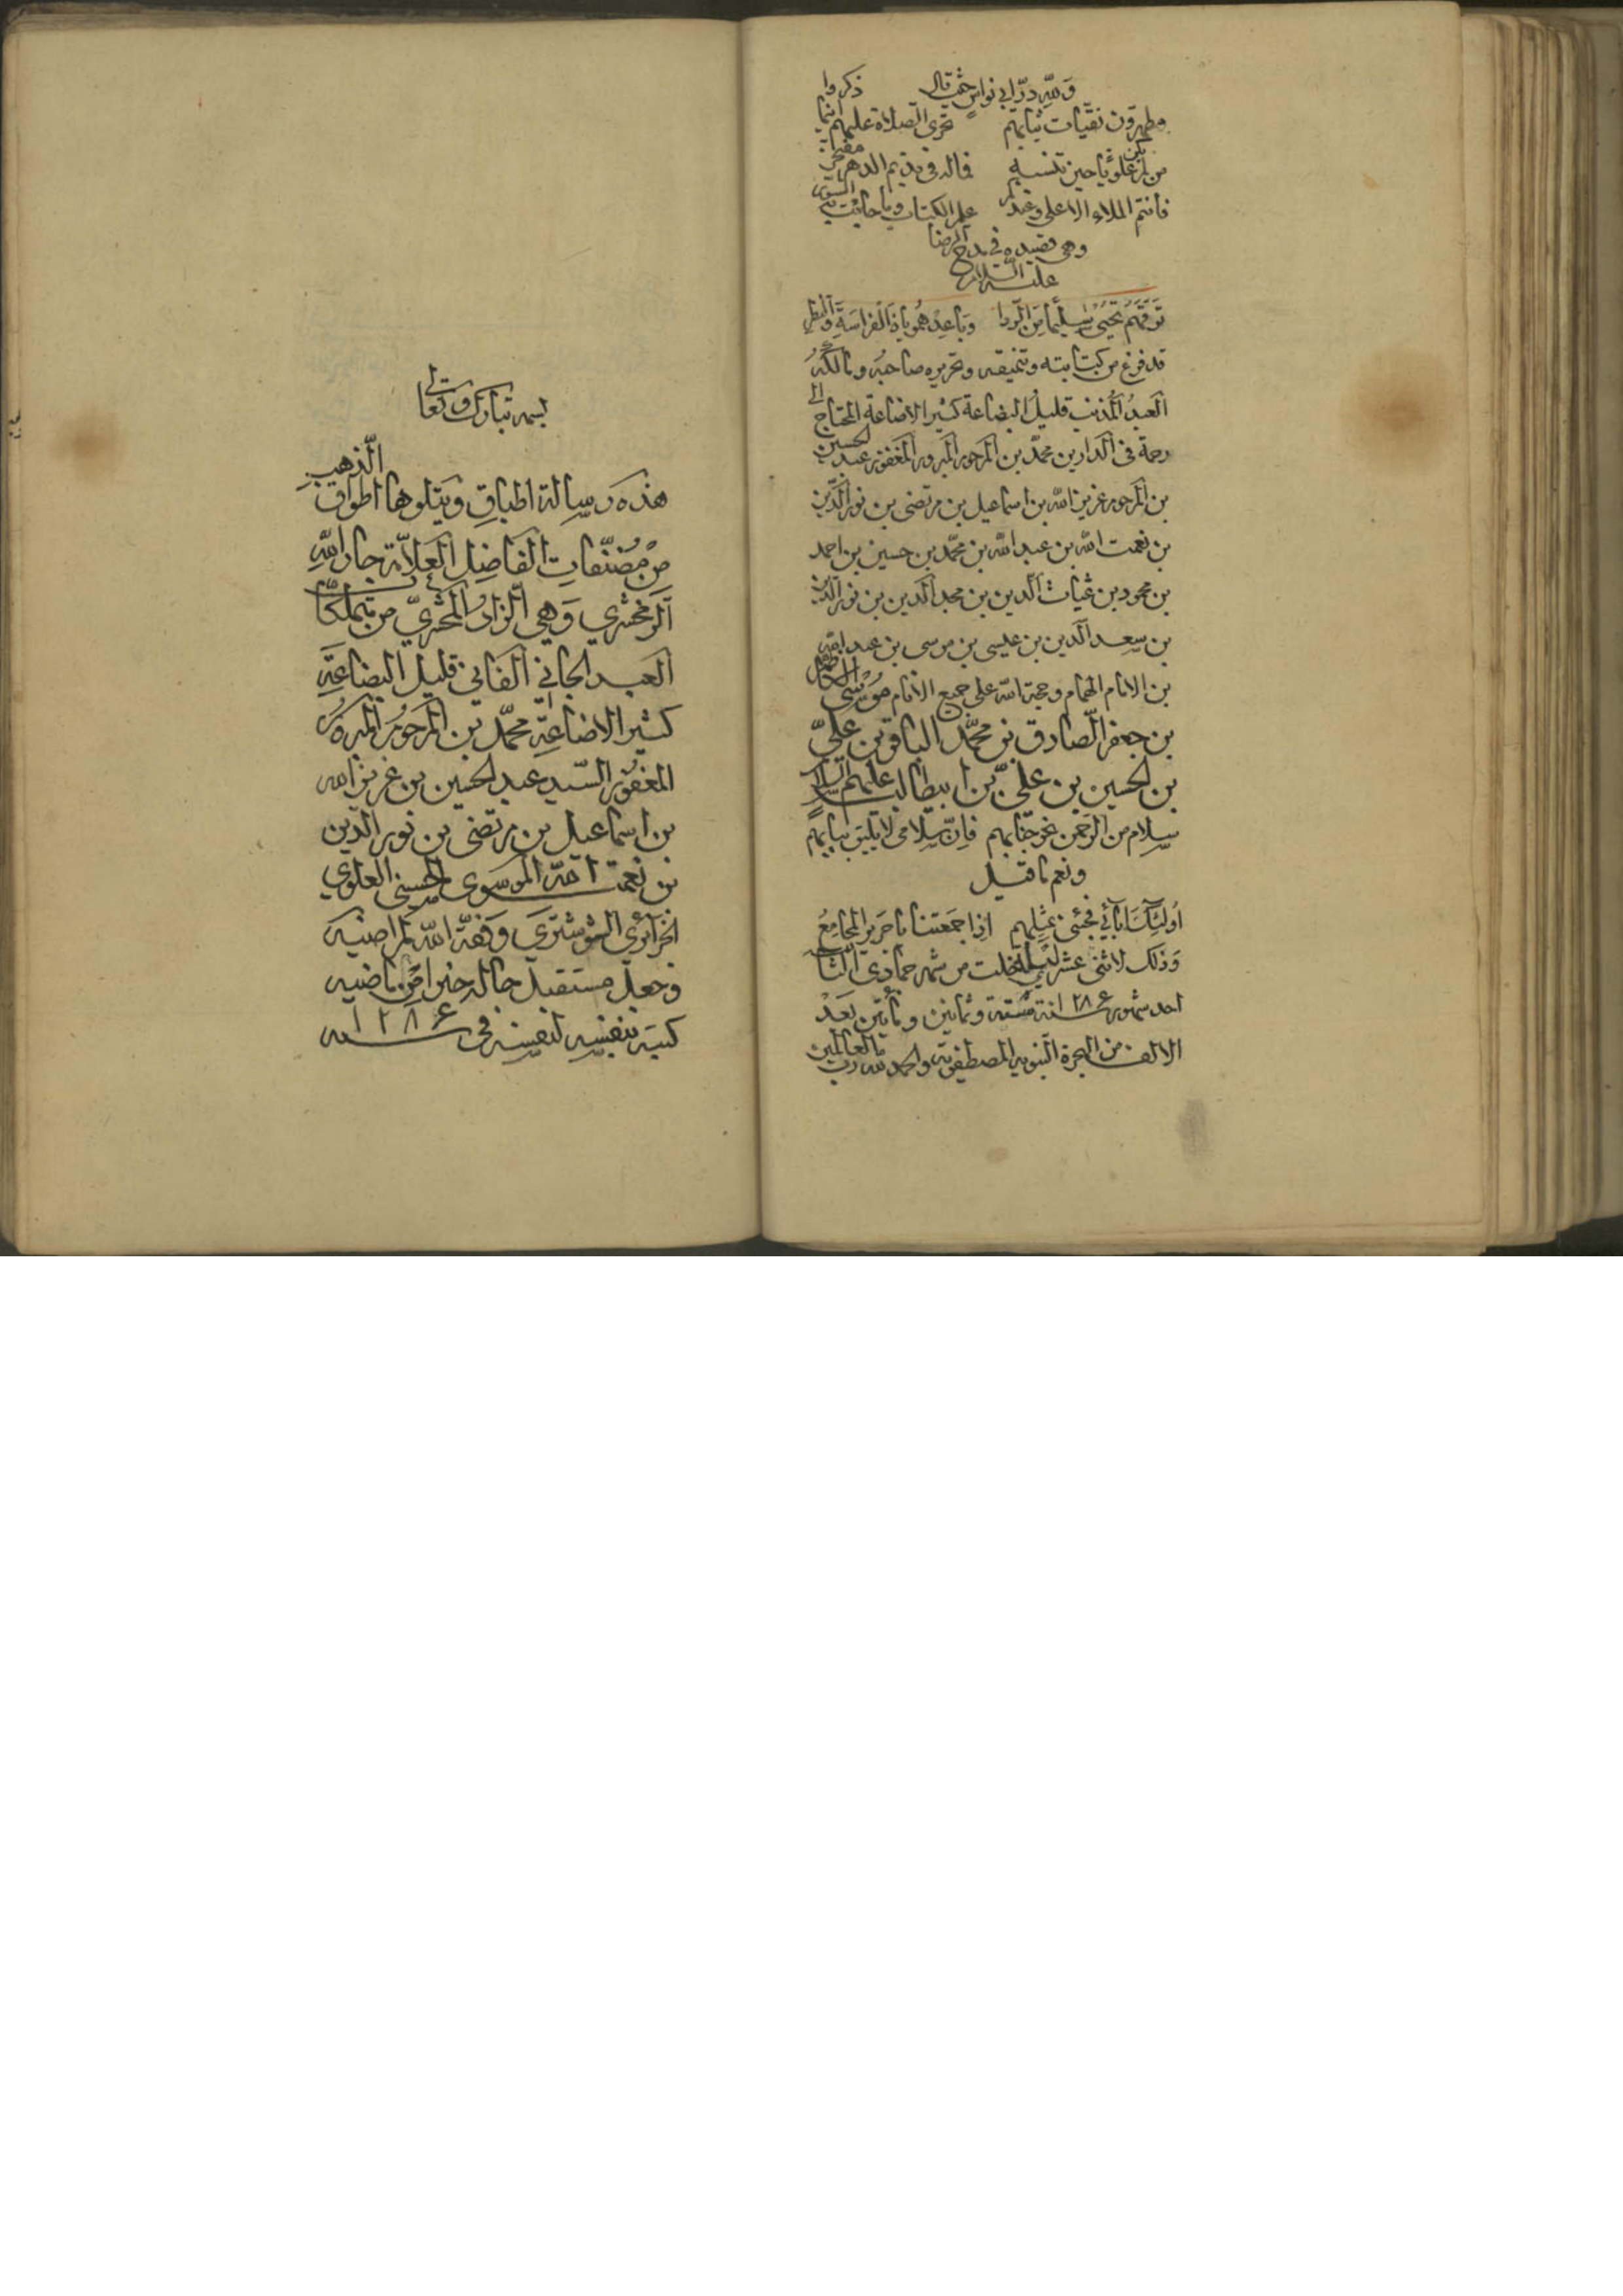 ولله در ابي نواس حيث قال
مطهرون نقيات ثيابهم تجري الصلاة عليهم اينما ذكروا
من لم يكن علويا حين تنسبه فماله في قديم الدهر مفتخر
فانتم الملاء الاعلى وعندكم علم الكتاب وما جائت به السور
وهي قصيده في مدح الرضا
عليه السلام
توقهم تحيى سليما من الردا وباعد هموا ياذا الفراسة والنظر
قد فرغ من كتابته وتنميقه وتحريره صاحبه ومالكه
العبد المذنب قليل البضاعة كثير الاضاعة المحتاج الى
رحمة في الدارين محمد بن المرحوم المبرور المغفور عبد الحسين
بن المرحوم عزيز الله بن اسماعيل بن مرتضى بن نور الدين
بن نعمت الله بن عبد الله بن محمد بن حسين بن احمد
بن محمود بن غياث الدين بن مجد الدين بن نور الدين
بن سعد الدين بن عيسى بن موسى بن عبد الله
بن الامام الهمام وحجة الله على جميع الانام موسى الكاظم
بن جعفر الصادق بن محمد الباقر بن علي
بن الحسين بن علي بن ابيطالب عليهم السلام
سلام من الرحمن نحو جنابهم فان سلامي لا يليق ببابهم
ونعم ما قيل
اولئك آبائي فجئني بمثلهم اذا جمعتنا يا جرير المجامع
وذلك لاثنى عشر ليلة خلت من شهر جمادي الثاني
احد شهور ۱۲۸۶ سنة ستة وثمانين ومأتين بعد
الالف من الهجرة النبويه المصطفويه والحمد لله رب العالمين
بسمه تبارك وتعالى
هذه رسالة اطباق ويتلوها اطواق الذهب
من مصنفات الفاضل العلامة جار الله
الزمخشري وهي الزاد للمحشري من تملكات
العبد الجاني الفاني قليل البضاعة
كثير الاضاعة محمد بن المرحوم المبرور
المغفور السيد عبد الحسين بن عزيز الله
بن اسماعيل بن مرتضى بن نور الدين
بن نعمت الله الموسوي الحسيني العلوي
الجزائري الشوشتري وفقه الله لمراضيه
وجعل مستقبل حاله خيرا من ماضيه
كتبه بنفسه لنفسه في سنه ۱۲۸۶